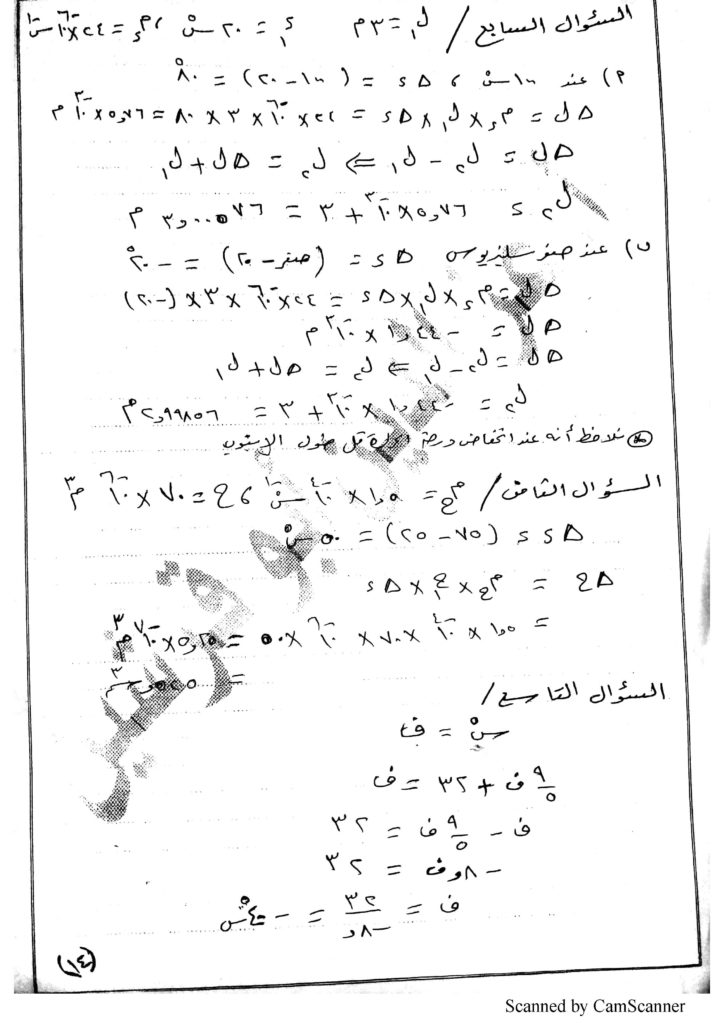 السؤال السابع / ل١ = ٣م ء١ = ٢٠ْس ، م ء = ٢٤×١٠^-٦ س^-١
٢) عند ١٠٠ س ، Δ ء = (١٠٠ - ٢٠) = ٨٠ْ
Δ ل = م ء × ل١ × Δ ء = ٢٤ × ١٠^-٦ × ٣ × ٨٠ = ٥,٧٦×١٠^-٣ م
Δ ل = ل٢ - ل١ ⇒ ل٢ = Δ ل + ل١
ل٢ = ٥,٧٦×١٠^-٣ + ٣ = ٣,٠٠٥٧٦ م
ب) عند صفر سليزيوس Δ ء = (صفر - ٢٠) = - ٢٠ْ
Δ ل = م ء × ل١ × Δ ء = ٢٤×١٠^-٦ × ٣ × (-٢٠)
Δ ل = - ١,٤٤ × ١٠^-٣ م
Δ ل = ل٢ - ل١ ⇒ ل٢ = Δ ل + ل١
ل٢ = - ١,٤٤ × ١٠^-٣ + ٣ = ٢,٩٩٨٥٦ م
نلاحظ أنه عند انخفاض درجة الحرارة قل طول الانبوب
السؤال الثامن / م ح = ١,٥ × ١٠^-٤ س^-١ ، ح = ٧٠ × ١٠^-٦ م^٣
Δ ء = (٧٥ - ٢٥) = ٥٠ْ س
Δ ح = م ح × ح١ × Δ ء
= ١,٥ × ١٠^-٤ × ٧٠ × ١٠^-٦ × ٥٠ = ٥,٢٥×١٠^-٧ م^٣
السؤال التاسع /
سْ = ف
٩/٥ ف + ٣٢ = ف
ف - ٩/٥ ف = ٣٢
- ٨,ف = ٣٢
ف = ٣٢/-٨, = - ٤٠ْس
(١٤)
Scanned by CamScanner